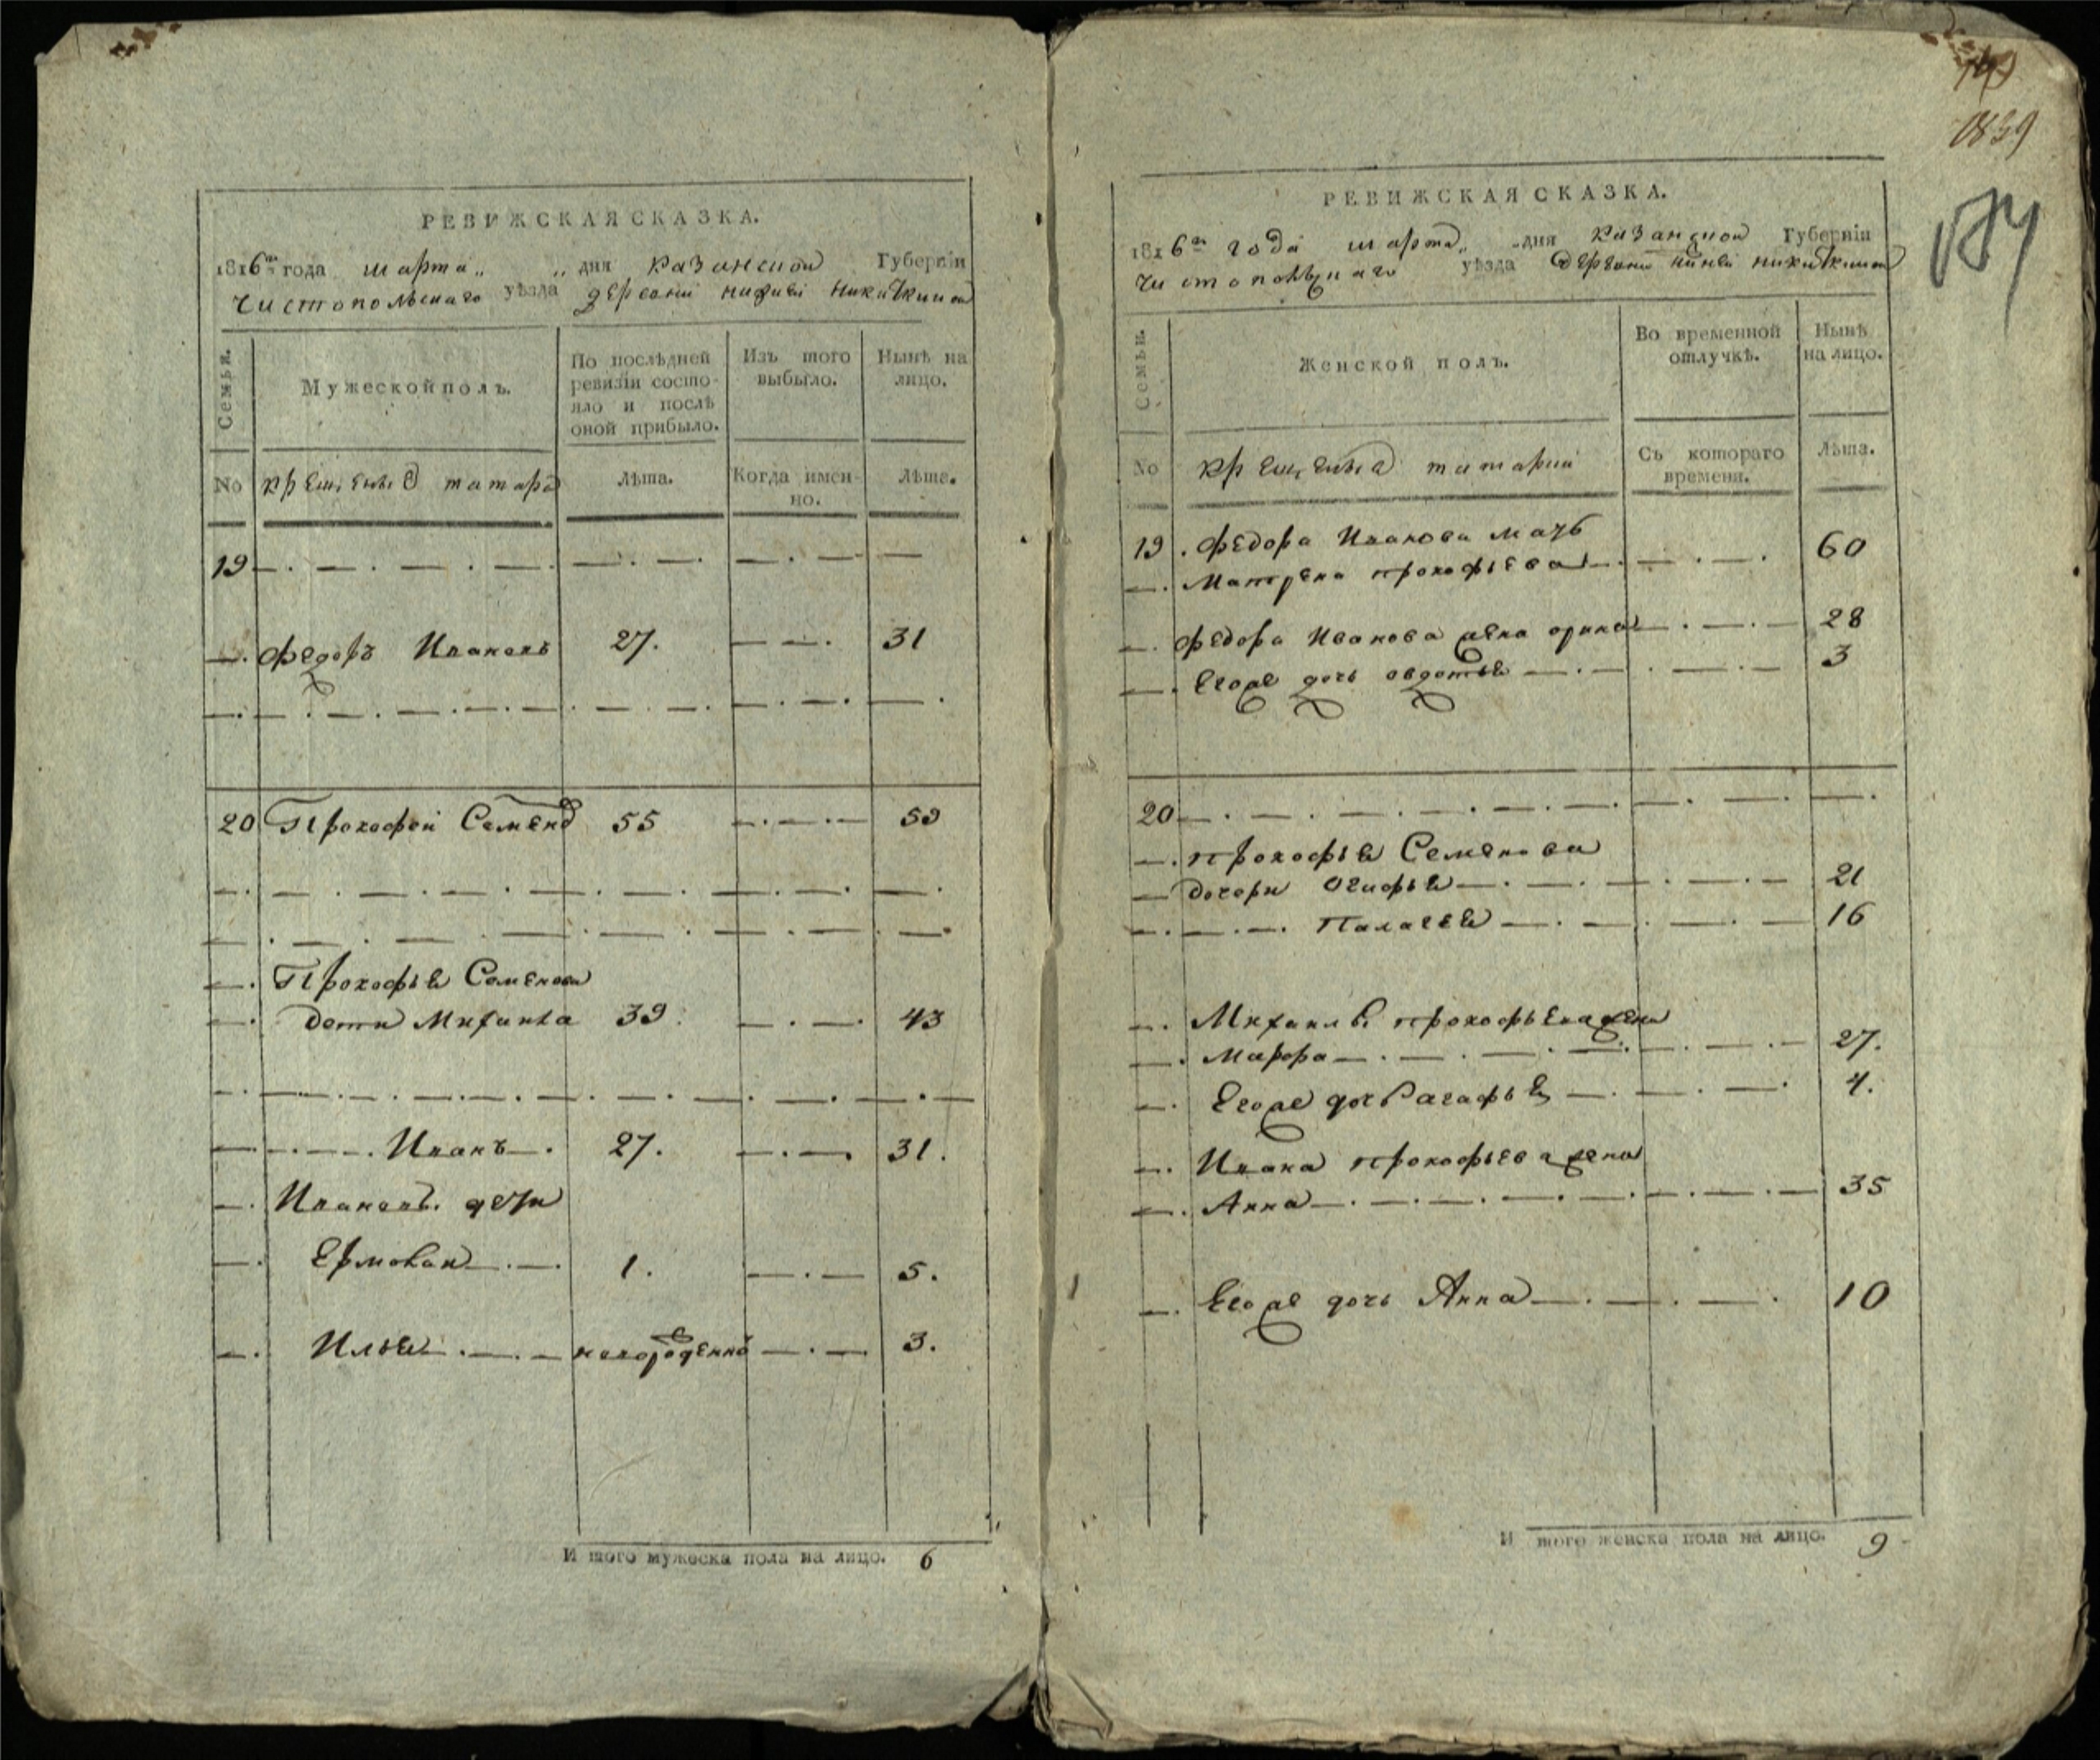 РЕВИЖСКАЯ СКАЗКА.
1816го года марта „ „ дня казанской Губерніи
чистопольскаго уѣзда деревни нижней никиткиной
Семьи.
Мужеской полъ.
По послѣдней ревизіи состояло и послѣ оной прибыло.
Изъ того выбыло.
Нынѣ на лицо.
No
крещеныя татара
Лѣта.
Когда именно.
Лѣта.
19
Федоръ Ивановъ 27. 31
20 Прокофей Семенов 55 59
Прокофья Семенова
дети Михаила 39. 43
Иванъ 27. 31.
Ивановы дети
Ермолай 1. 5.
Илья новорожденной 3.
И того мужеска пола на лицо. 6
839
РЕВИЖСКАЯ СКАЗКА.
1816го года марта „ „ дня казанской Губерніи
чистопольскаго уѣзда деревни нижней никиткиной
Семьи.
Женской полъ.
Во временной отлучкѣ.
Нынѣ на лицо.
No
крещеныя татарки
Съ котораго времени.
Лѣта.
19. Федора Иванова мать
Матрена прокофьева 60
Федора Иванова жена орина 28
Егоже дочь авдотья 3
20
прокофья Семенова
дочери Огафья 21
Палагея 16
Михаилы прокофьева жена
Марфа 27.
Егоже дочь агафья 4.
Ивана прокофьева жена
Анна 35
Егоже дочь Анна 10
И того женска пола на лицо. 9